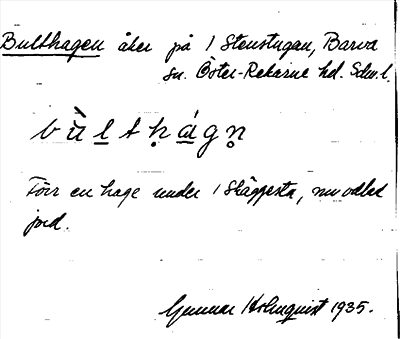 Bulthagen åker på 1 Stenstugan, Barva
sn. Öster-Rekarne hd. Sdm. l.
bù̀l̲tḥá̲gṇ
Förr en hage under 1 Skäggesta, nu odlad
jord.
Gunnar Holmquist 1935.